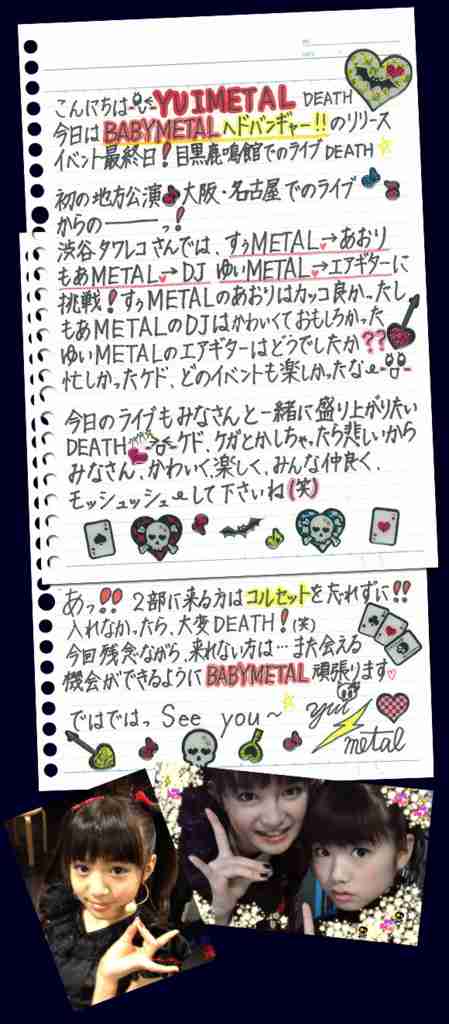 こんにちは YUIMETAL DEATH
今日はBABYMETALヘドバンギャー!!のリリース
イベント最終日!目黒鹿鳴館でのライブDEATH
初の地方公演♪大阪・名古屋でのライブ
からの———っ!
渋谷タワレコさんでは、すぅMETAL→あおり
もあMETAL→DJ ゆいMETAL→エアギターに
挑戦!すぅMETALのあおりはカッコ良かったし
もあMETALのDJはかわいくておもしろかった
ゆいMETALのエアギターはどうでしたか??
忙しかったケド、どのイベントも楽しかったな
今日のライブもみなさんと一緒に盛り上がりたい
DEATH ケド、ケガとかしちゃったら悲しいから
みなさん、かわいく楽しく、みんな仲良く、
モッシュッシュして下さいね(笑)
あっ!! 2部に来る方はコルセットを忘れずに!!
入れなかったら、大変DEATH!(笑)
今回残念ながら、来れない方は…また会える
機会ができるようにBABYMETAL頑張ります♡
ではではっ See you~
yui
metal